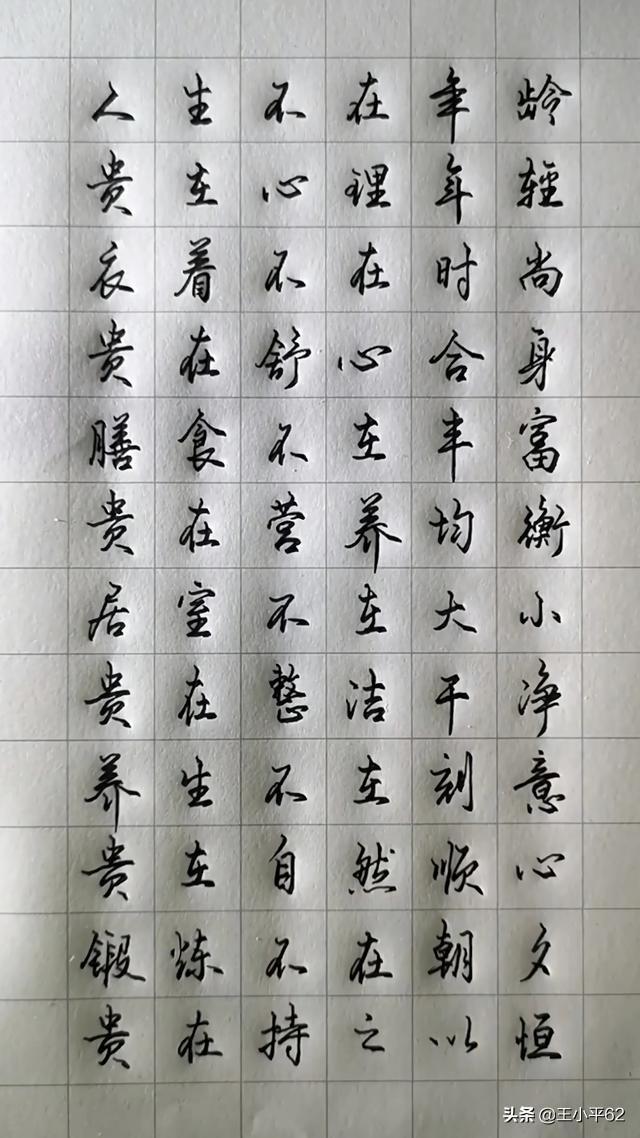 人生不在年龄
贵在心理年輕
衣着不在时尚
贵在舒心合身
膳食不在丰富
贵在营养均衡
居室不在大小
贵在整洁干净
养生不在刻意
贵在自然顺心
锻炼不在朝夕
贵在持之以恒
头条 @王小平62